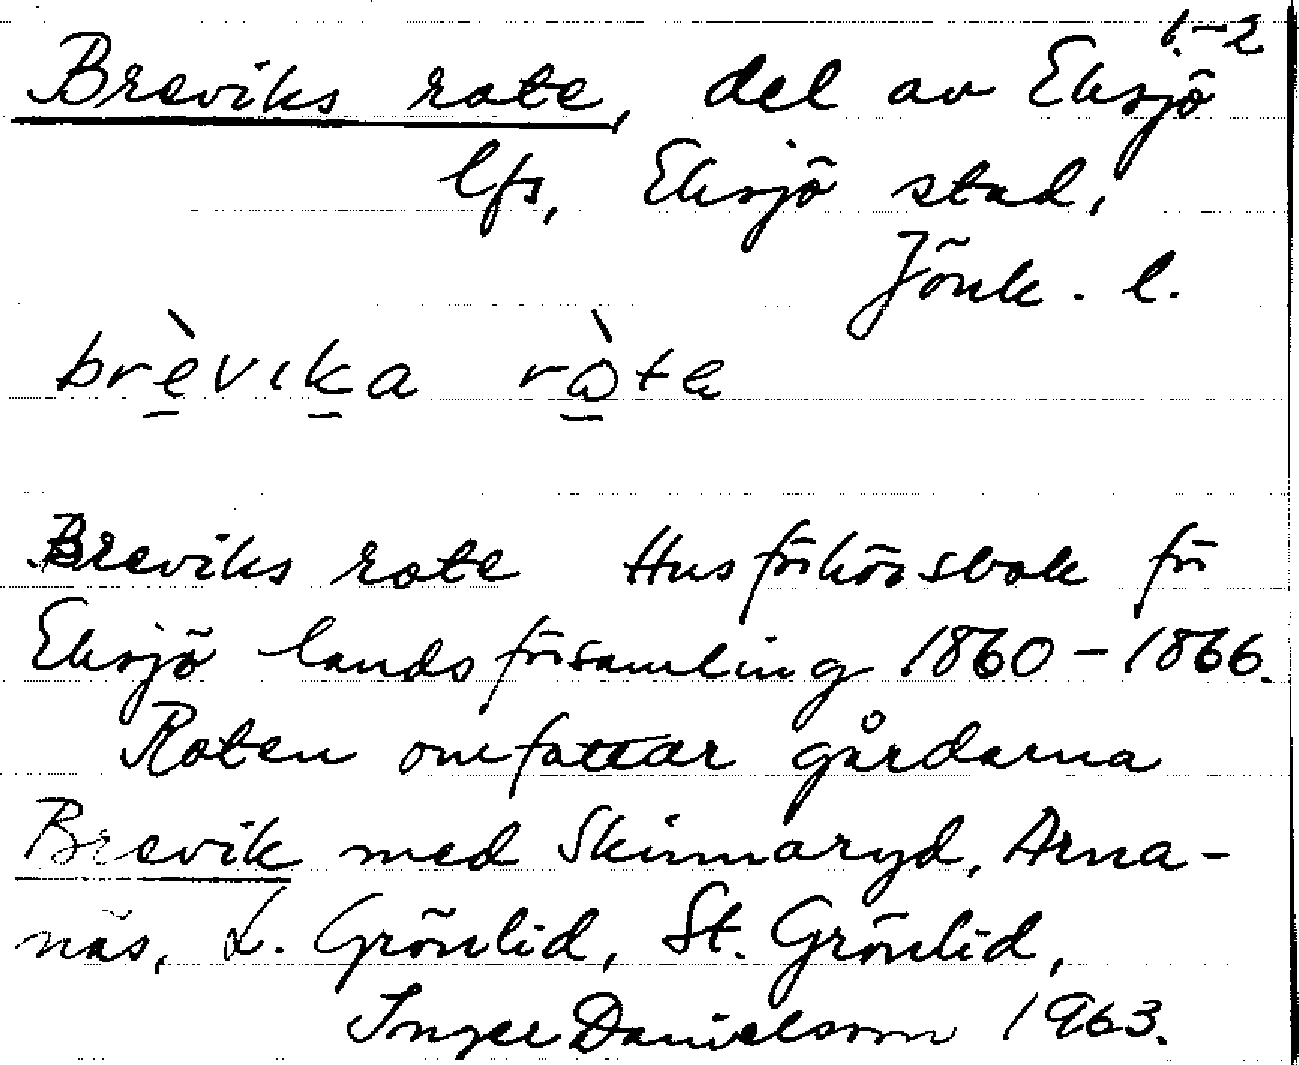 1.-2
Breviks rote, del av Eksjö
lfs, Eksjö stad,
Jönk. l.
brèvika ròte
Breviks rote Husförhörsbok för
Eksjö landsförsamling 1860-1866.
Roten omfattar gårdarna
Brevik med Skinnaryd, Arna-
näs, L. Grönlid, St. Grönlid,
Inger Danielsson 1963.